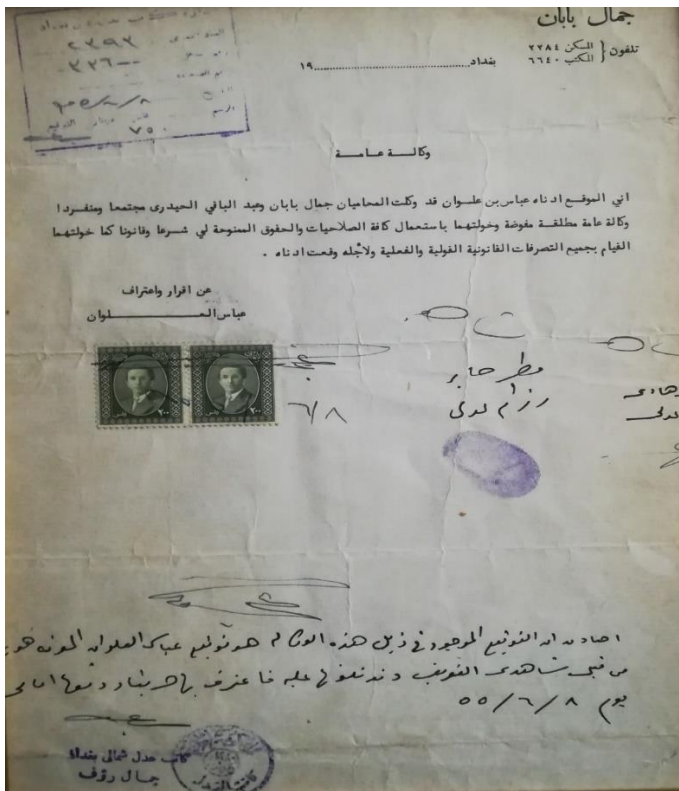 جمال بابان
تلفون { المسكن ٢٢٨٤
المكتب ٦٦٤٠
بغداد ................ ١٩
٢٣٩٢
٧٥٠
وكالـــة عـامــة
اني الموقع ادناه عباس بن علـوان قد وكلت المحاميان جمال بابان وعبد الباقي الحيدرى مجتمعا ومنفـردا
وكالة عامة مطلقـة مفوضة وخولتهمـا باستعمال كافة الصلاحيات والحقوق الممنوحة لي شـرعا وقانونا كما خولتهمـا
القيام بجميع التصرفات القانونية القولية والفعلية ولاجله وقعت ادناه .
عن اقرار واعتراف
عباس العـــــــلوان
٢٠٠ فلس ٢٠٠
٦/٨
مطر جابر
اصادق ان التوقيع الموجود في ذيل هذه الوكالة هو توقيع عباس العلوان المعرفة هويته
من قبل شاهدى التعريف وقد تلوتها عليه فاعترف بها
يوم ٥٥/٦/٨
كاتب عدل شمالي بغداد
جمـال رؤف